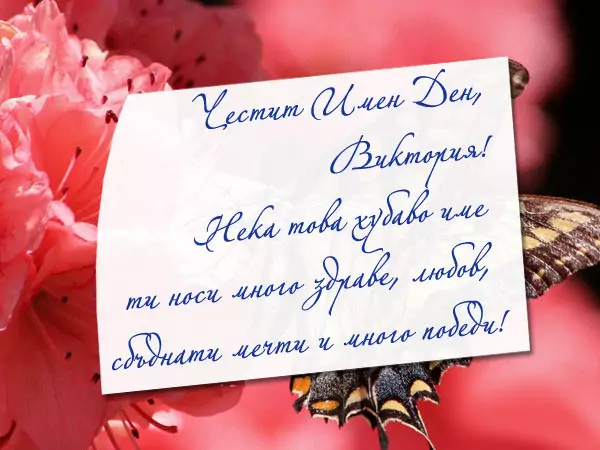 Честит Имен Ден,
Виктория!
Нека това хубаво име
ти носи много здраве, любов,
сбъднати мечти и много победи!